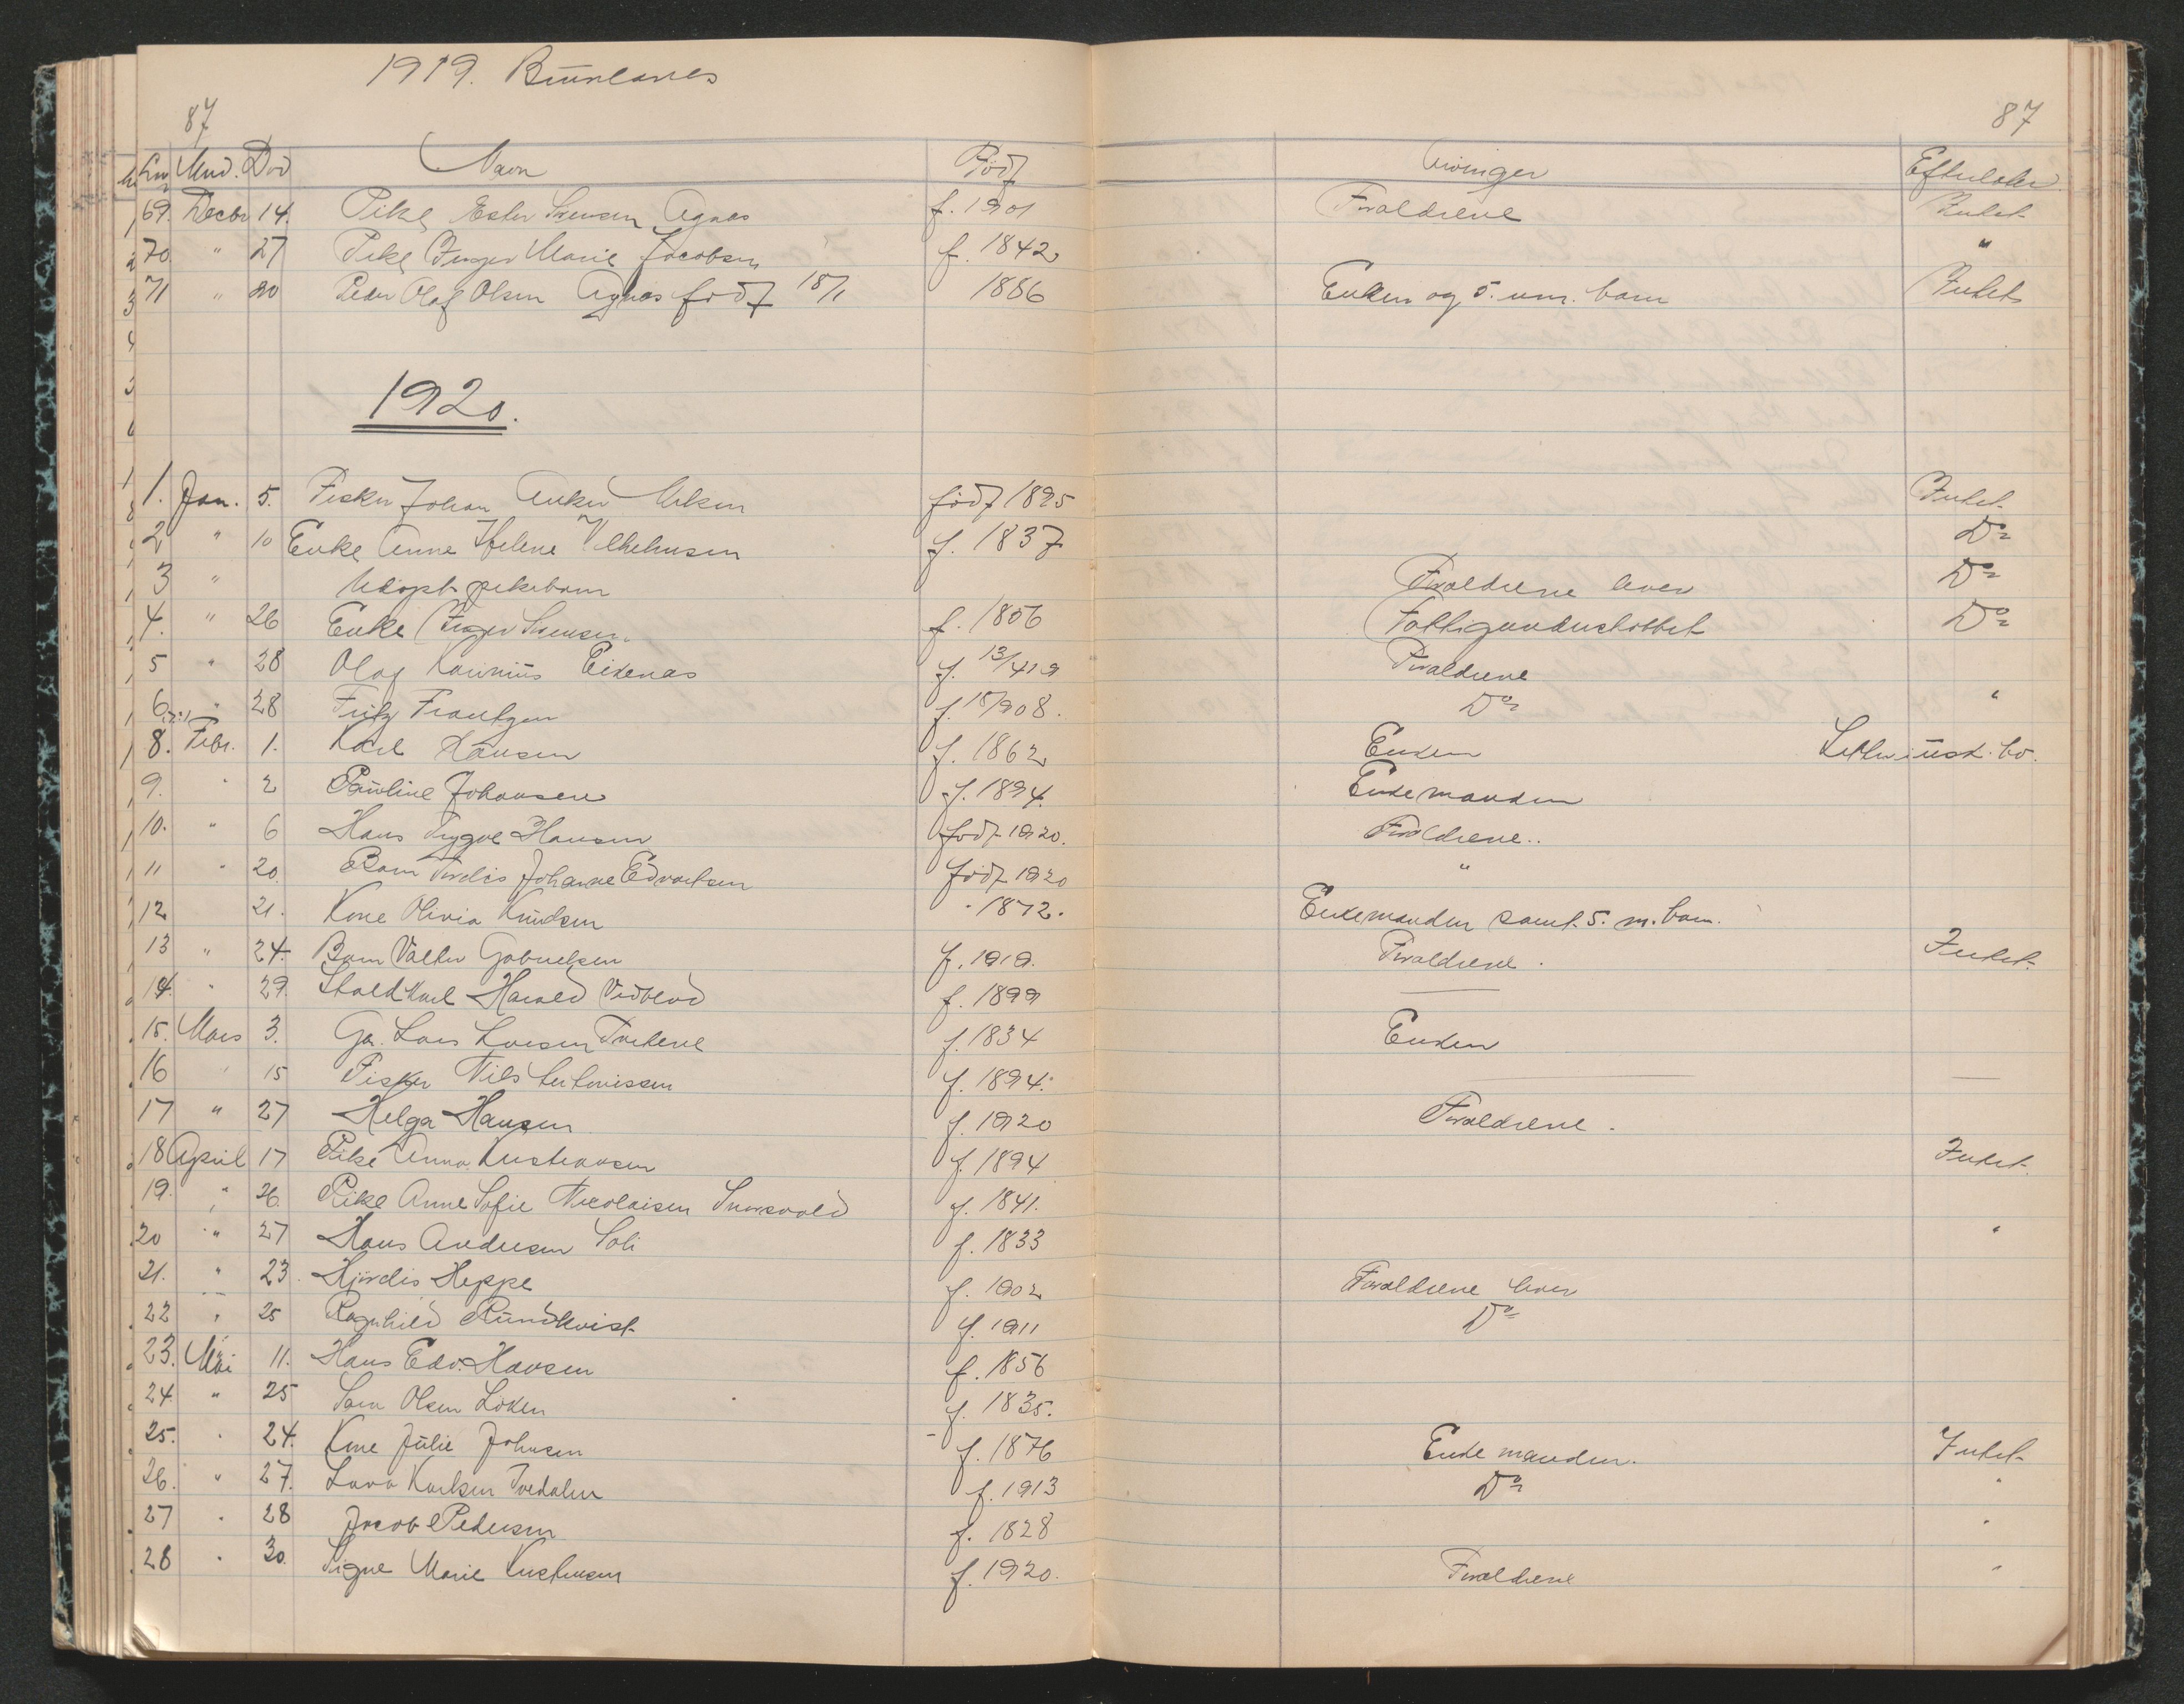 1919. Bunlanes
87 87
Lnr Mnd. Død Navn Født Arvinger Efterlader
69. Decbr 14. Pike Ester Svensen Agnes f. 1901 Forældrene Intet
70 " 27 Pike Inger Marie Jacobsen f. 1842 "
71 " 20 Peder Olaf Olsen Agnes født 18/1 1886 Enken og 5. um. barn Intet
1920.
1. Jan. 5. Fisker Johan Anker født 1895 Intet
2 " 10 Enke Anne Helene Vilhelmsen f. 1837 Do
3 " Udøpt pikebarn Forældrene lever Do
4. " 26 Enke Inger Svensen. f. 1856 Fattigunderstøttet Do
5 " 28 Olaf f. 13/4 19 Forældrene
6 " 28 Fritz Frantzen f. 18/9 08. Do "
8. Febr. 1. Karl Hansen f. 1862 Enken bo.
9. " 2 Pauline Johansen f. 1894. Enkemanden
10. " 6 Hans Trygve Hansen født 1920. Forældrene..
11 " 20. Barn Johanne Edvartsen født 1920 "
12 21. Kone Olivia Knudsen " 1872. Enkemanden samt 5. m. barn.
13 " 24. Barn Valter Gabrielsen f. 1919. Forældrene. Intet.
14. " 29. Karl Harald f. 1899
15. Mars 3. Ga. Lars Larsen f. 1834 Enken
16 " 15 Fisker Nils f. 1894.
17 " 27 Helga Hansen f. 1920 Forældrene.
18 April 17 Pike Anna Kristiansen f. 1894 Intet.
19. " 26. Pike Anne Sofie Nicolaisen f. 1841.
20 " 27 Hans Andresen Soli f. 1833 "
21. " 23. Hjørdis Heppe f. 1902 Forældrene lever
22 " 25 Ragnhild Rundkvist f. 1911 Do
23. Mai 11. Hans Edv. Hansen f. 1856
24. " 25 Olsen Løken f. 1835.
25. " 24. Kone Julie Johnsen f. 1876 Enkemanden. Intet
26. " 27. Karlsen Tvedalen f. 1913 Do "
27 " 28 Jacob Pedersen f. 1828 "
28 " 30. Signe Marie Kristensen f. 1920. Forældrene "